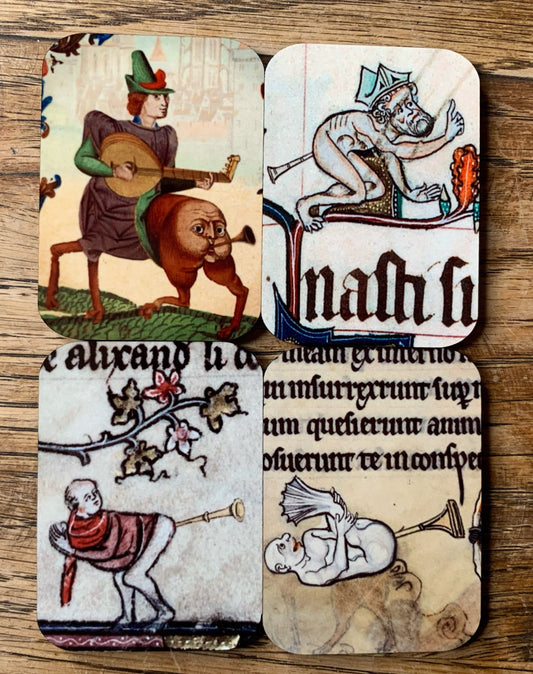 nasti si
e alixand li
ui insurrexerunt
um quesierunt anim
osuerunt te in conspe